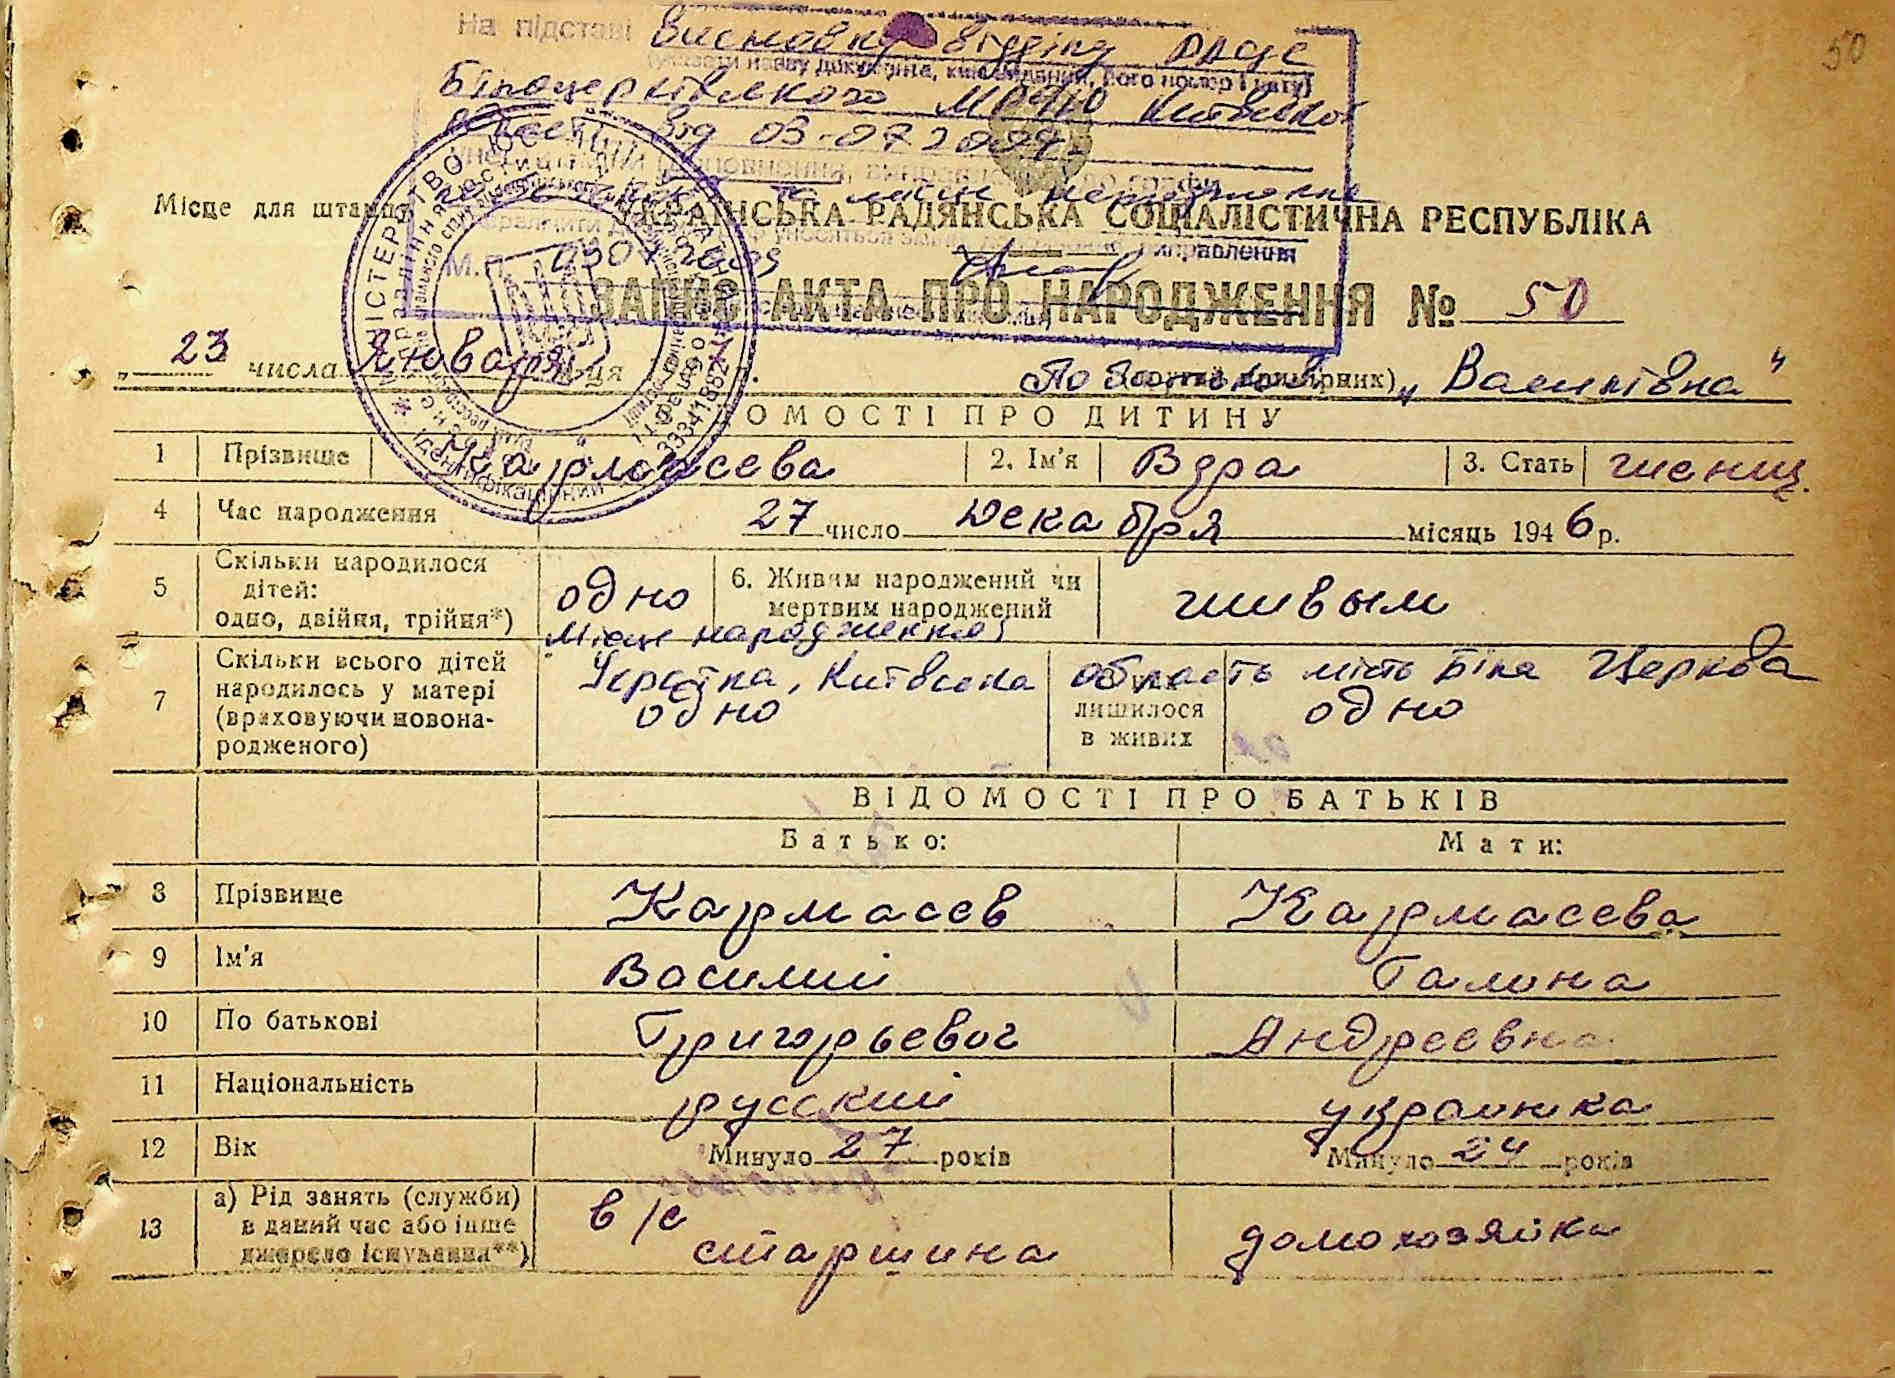 50
На підставі Висновку відділу рацс
(указати назву документа, ким виданий, його номер і дату)
Білоцерківського МРУЮ Київської
від 03.07.2009
Місце для штампу УКРАЇНСЬКА РАДЯНСЬКА СОЦІАЛІСТИЧНА РЕСПУБЛІКА
виправлення
М.П.
ЗАПИС АКТА ПРО НАРОДЖЕННЯ № 50
„23 числа Января м-ця
По батькові „Василівна"
ВІДОМОСТІ ПРО ДИТИНУ
1 Прізвище Кармасева 2. Ім'я Вера 3. Стать женщ.
4 Час народження 27 число Декабря місяць 1946 р.
5 Скільки народилося дітей: одно, двійня, трійня*) одно 6. Живим народжений чи мертвим народжений живым
Місце народження:
Україна, Київська область місто Біла Церква
7 Скільки всього дітей народилось у матері (враховуючи новонародженого) одно лишилося в живих одно
ВІДОМОСТІ ПРО БАТЬКІВ
Батько: Мати:
8 Прізвище Кармасев Кармасева
9 Ім'я Василий Галина
10 По батькові Григорьевич Андреевна
11 Національність русский украинка
12 Вік Минуло 27 років Минуло 24 років
13 а) Рід занять (служби) в даний час або інше джерело існування**) в/с старшина домохозяйка